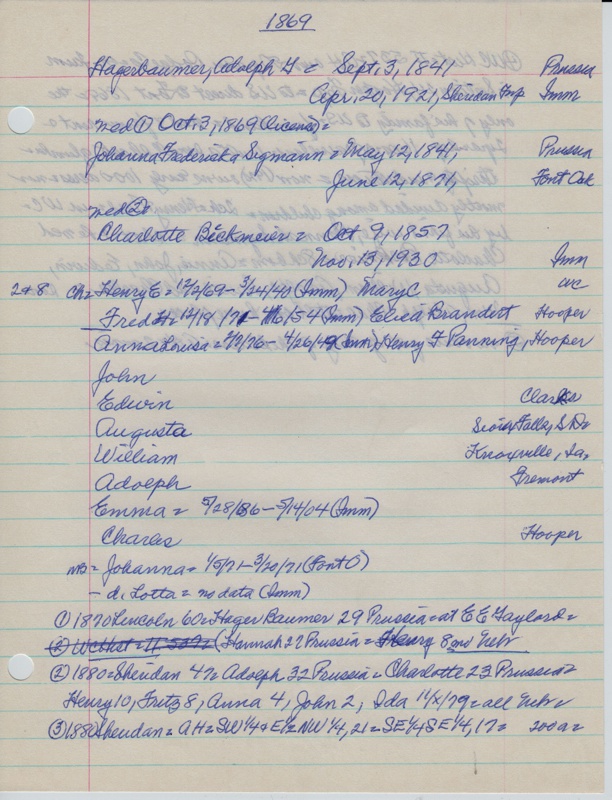 1869
Hagerbaumer, Adolph H = Sept. 3, 1841 Prussia
Apr. 20, 1921, Sheridan Twp Imm
med ① Oct. 3, 1869 (license) =
Johanna Frederieka Segmann = May 12, 1841, Prussia
June 12, 1871, Font Oak
med ② =
Charlotte Beckmeier = Oct 9, 1857
Nov. 13, 1930 Imm
2 & 8 ch = Henry E = 12/2/69 - 3/24/40 (Imm) Mary C WC
Fred H = 12/18/71 - 4/6/54 (Imm) Elica Brandert Hooper
Anna Louisa = 2/7/76 - 4/26/49 (Imm) Henry F Panning, Hooper
John
Edwin Clarks
Augusta Sioux Falls, S. Da
William Knoxville, Ia,
Adolph Fremont
Emma = 5/28/86 - 5/14/04 (Imm)
Charles Hooper
nb = Johanna = 1/5/71 - 3/20/71 (Font O)
- d. Lotta = no data (Imm)
① 1870 Lincoln 60 = Hager Baumer 29 Prussia = at E E Gaylord =
(Hannah 27 Prussia = Henry 8 mo Nebr
② 1880 = Sheridan 47 = Adolph 32 Prussia = Charlotte 23 Prussia =
Henry 10, Fritz 8, Anna 4, John 2, Ida 11/x/79 = all Nebr =
③ 1880 Sheridan = AH = SW 1/4 & E 1/2 NW 1/4, 21 = SE 1/4 SE 1/4, 17 = 200 a =